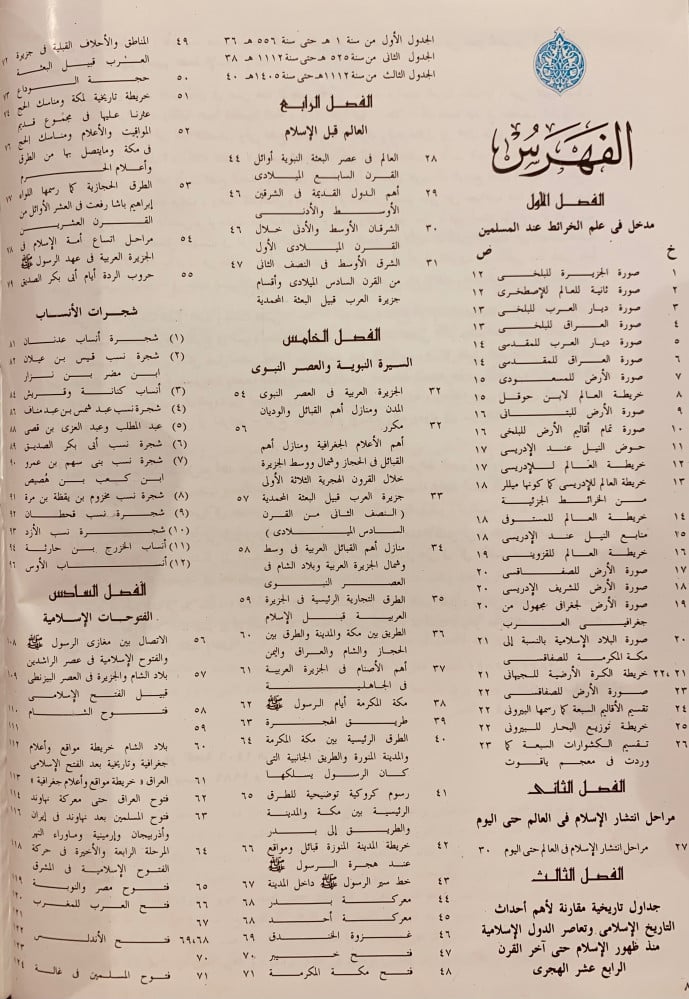 الفهرس
الفصل الأول
مدخل فى علم الخرائط عند المسلمين
خ ص
١ صورة الجزيرة للبلخى ١٢
٢ صورة ثانية للعالم للإصطخرى ١٢
٣ صورة ديار العرب للبلخى ١٣
٤ صورة العراق للبلخى ١٣
٥ صورة ديار العرب للمقدسى ١٤
٦ صورة العراق للمقدسى ١٤
٧ صورة الأرض للمسعودى ١٥
٨ خريطة العالم لابن حوقل ١٥
٩ صورة الأرض للبتانى ١٦
١٠ صورة تمام أقاليم الأرض للبلخى ١٦
١١ حوض النيل عند الإدريسى ١٧
١٢ خريطة العالم للإدريسى ١٧
١٣ خريطة العالم للإدريسى كما كونها ميللر ١٨
من الخرائط الجزئية
١٤ خريطة العالم للمستوفى ١٨
١٥ منابع النيل عند الإدريسى ١٨
١٦ خريطة العالم للقزوينى ١٩
١٧ صورة الأرض للصفاقسى ٢٠
١٨ صورة الأرض للشريف الإدريسى ٢٠
١٩ صورة الأرض لجغرافى مجهول من ٢٠
جغرافيى العرب
٢٠ صورة البلاد الإسلامية بالنسبة إلى ٢١
مكة المكرمة للصفاقسى
٢١ ،٢٢ خريطة الكرة الأرضية للجيهانى ٢١
٢٣ صورة الأرض للصفاقسى ٢٢
٢٤ تقسيم الأقاليم السبعة كما رسمها البيرونى ٢٢
٢٥ خريطة توزيع البحار للبيرونى ٢٢
٢٦ تقسيم الكشوارات السبعة كما ٢٣
وردت فى معجم ياقوت
الفصل الثانى
مراحل انتشار الإسلام فى العالم حتى اليوم
٢٧ مراحل انتشار الإسلام فى العالم حتى اليوم ٣٠
الفصل الثالث
جداول تاريخية مقارنة لأهم أحداث
التاريخ الإسلامى وتعاصر الدول الإسلامية
منذ ظهور الإسلام حتى آخر القرن
الرابع عشر الهجرى
الجدول الأول من سنة ١ هـ حتى سنة ٥٥٦ هـ ٣٦
الجدول الثانى من سنة ٥٢٥ هـ حتى ١١١٢ هـ ٣٨
الجدول الثالث من سنة ١١١٢ هـ حتى ١٤٠٥ هـ ٤٠
الفصل الرابع
العالم قبل الإسلام
٢٨ العالم فى عصر البعثة النبوية أوائل ٤٤
القرن السابع الميلادى
٢٩ أهم الدول القديمة فى الشرقين ٤٦
الأوسط والأدنى
٣٠ الشرقان الأوسط والأدنى خلال ٤٦
القرن الميلادى الأول
٣١ الشرق الأوسط فى النصف الثانى ٤٧
من القرن السادس الميلادى وأقسام
جزيرة العرب قبيل البعثة المحمدية
الفصل الخامس
السيرة النبوية والعصر النبوى
٣٢ الجزيرة العربية فى العصر النبوى ٥٤
المدن ومنازل أهم القبائل والوديان
٣٢ مكرر ٥٦
أهم الأعلام الجغرافية ومنازل أهم
القبائل فى الحجاز وشمال ووسط الجزيرة
خلال القرون الهجرية الثلاثة الأولى
٣٣ جزيرة العرب قبيل البعثة المحمدية ٥٧
( النصف الثانى من القرن
السادس الميلادى )
٣٤ منازل أهم القبائل العربية فى وسط ٥٨
وشمال الجزيرة العربية وبلاد الشام فى
العصر النبوى
٣٥ الطرق التجارية الرئيسية فى الجزيرة ٥٩
العربية قبل الإسلام
٣٦ الطريق بين مكة والمدينة والطرق بين ٦٠
الحجاز والشام والعراق واليمن
٣٧ أهم الأصنام فى الجزيرة العربية ٦١
فى الجاهلية
٣٨ مكة المكرمة أيام الرسول ﷺ ٦٢
٣٩ طريق الهجرة ٦٣
٤٠ الطرق الرئيسية بين مكة المكرمة ٦٤
والمدينة المنورة والطريق الجانبية التى
كان الرسول يسلكها
٤١ رسوم كروكية توضيحية للطرق ٦٥
الرئيسية بين مكة والمدينة
والطريق إلى بدر
٤٢ خريطة المدينة المنورة قبائل ومواقع ٦٦
عند هجرة الرسول ﷺ
٤٣ خط سير الرسول ﷺ داخل المدينة ٦٧
٤٤ معركة بدر ٦٨
٤٥ معركة أحد ٦٨
٤٦ غزوة الخندق ٦٩
٤٧ فتح خيبر ٧٠
٤٨ فتح مكة المكرمة ٧١
٤٩ المناطق والأحلاف القبلية فى جزيرة ٧٢
العرب قبيل البعثة
٥٠ حجة الوداع ٧٣
٥١ خريطة تاريخية لمكة ومناسك الحج ٧٤
عثرنا عليها فى مجموع قديم
٥٢ المواقيت والأعلام ومناسك الحج ٧٦
فى مكة ومايتصل بها من الطرق
وأعلام الحرم
٥٣ الطرق الحجازية كما رسمها اللواء ٧٧
إبراهيم باشا رفعت فى العشر الأوائل من
القرن العشرين
٥٤ مراحل اتساع أمة الإسلام فى ٧٨
الجزيرة العربية فى عهد الرسول ﷺ
٥٥ حروب الردة أيام أبى بكر الصديق ٧٩
شجرات الأنساب
(١) شجرة أنساب عدنان ٨١
(٢) شجرة نسب قيس بن عيلان ٨٢
ابن مضر بن نزار
(٣) أنساب كنانة وقريش ٨٤
(٤) شجرة نسب عبد شمس بن عبد مناف ٨٦
(٥) عبد المطلب وعبد العزى بن قصى ٨٨
(٦) شجرة نسب أبى بكر الصديق ٨٩
(٧) شجرة نسب بنى سهم بن عمرو ٩٠
ابن كعب بن هُصيص
(٨) شجرة نسب مخزوم بن يقظة بن مرة ٩١
(٩) شجرة نسب قحطان ٩٢
(١٠) شجرة نسب الأزد ٩٣
(١١) أنساب الخزرج بن حارثة ٩٤
(١٢) أنساب الأوس ٩٦
الفصل السادس
الفتوحات الإسلامية
٥٦ الاتصال بين مغازى الرسول ﷺ ١٠٨
والفتوح الإسلامية فى عصر الراشدين
٥٧ بلاد الشام والجزيرة فى العصر البيزنطى ١٠٩
قبيل الفتح الإسلامى
٥٨ فتوح الشام ١١٠
٥٩ ١١١
٦٠ بلاد الشام خريطة مواقع وأعلام ١١٢
جغرافية وتاريخية بعد الفتح الإسلامى
٦١ العراق « خريطة مواقع وأعلام جغرافية » ١١٣
٦٢ فتوح العراق حتى معركة نهاوند ١١٤
٦٣ فتوح المسلمين بعد نهاوند فى إيران ١١٦
وأذربيجان وإرمينية وماوراء النهر
٦٤ المرحلة الرابعة والأخيرة فى حركة ١١٨
الفتوح الإسلامية فى المشرق
٦٥ فتوح مصر والنوبة ١١٩
٦٦ فتح العرب للمغرب ١٢٠
٦٧
٦٨،٦٩ فتح الأندلس ١٢٢
٧٠ ١٢٣
٧١ فتوح المسلمين فى غالة ١٢٤
٨